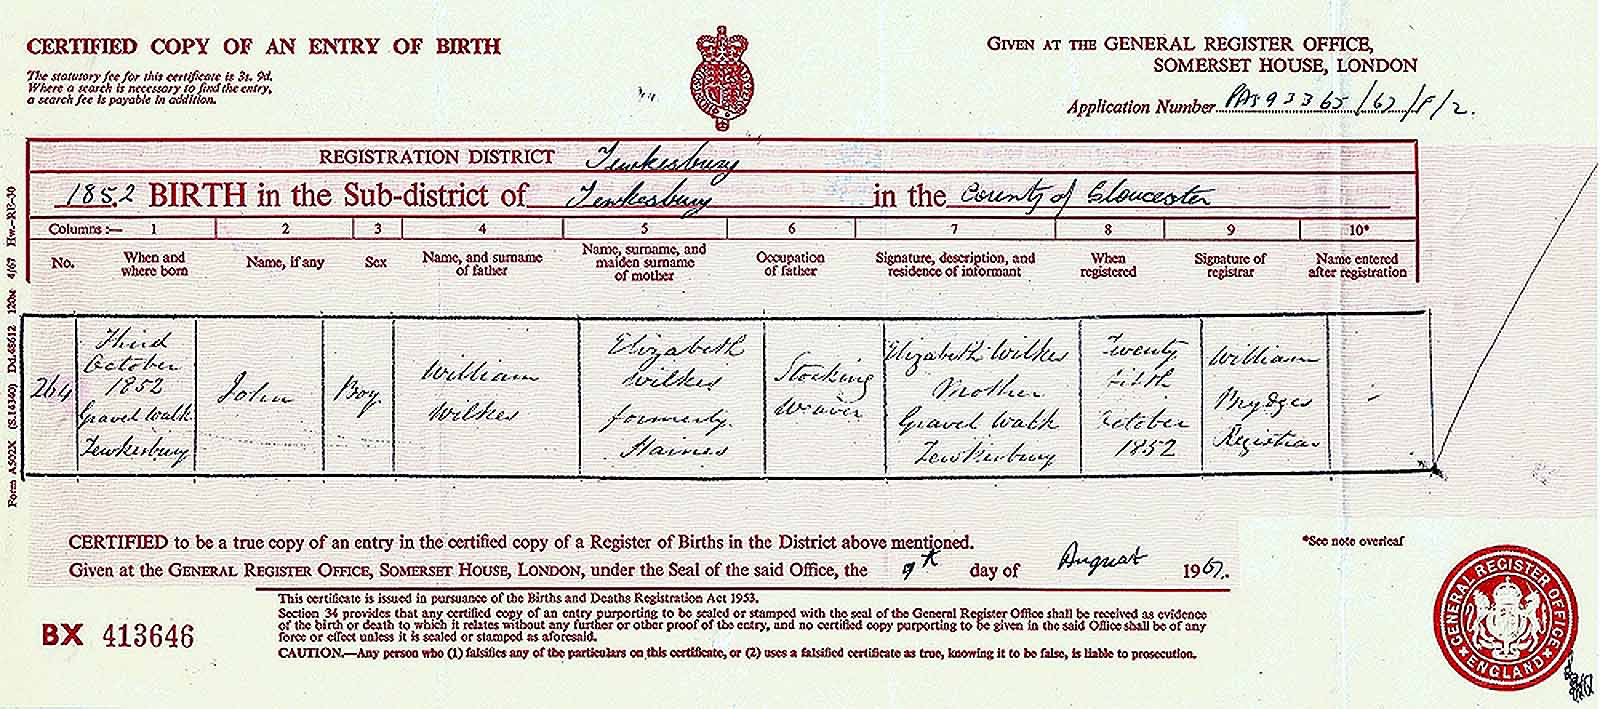 CERTIFIED COPY OF AN ENTRY OF BIRTH
GIVEN AT THE GENERAL REGISTER OFFICE,
SOMERSET HOUSE, LONDON
The statutory fee for this certificate is 3s. 9d.
Where a search is necessary to find the entry,
a search fee is payable in addition.
Application Number PAS 93365/67/
REGISTRATION DISTRICT Tewkesbury
1852 BIRTH in the Sub-district of Tewkesbury in the County of Gloucester
Columns :— 1 2 3 4 5 6 7 8 9 10*
No.
When and
where born
Name, if any
Sex
Name, and surname
of father
Name, surname, and
maiden surname
of mother
Occupation
of father
Signature, description, and
residence of informant
When
registered
Signature of
registrar
Name entered
after registration
264
Third
October
1852
Gravel Walk
Tewkesbury
John
Boy
William
Wilkes
Elizabeth
Wilkes
formerly
Haines
Stocking
Weaver
Elizabeth Wilkes
Mother
Gravel Walk
Tewkesbury
Twenty
fifth
October
1852
William
Brydges
Registrar
CERTIFIED to be a true copy of an entry in the certified copy of a Register of Births in the District above mentioned.
Given at the GENERAL REGISTER OFFICE, SOMERSET HOUSE, LONDON, under the Seal of the said Office, the 9th day of August 1967.
*See note overleaf
This certificate is issued in pursuance of the Births and Deaths Registration Act 1953.
Section 34 provides that any certified copy of an entry purporting to be sealed or stamped with the seal of the General Register Office shall be received as evidence
of the birth or death to which it relates without any further or other proof of the entry, and no certified copy purporting to be given in the said Office shall be of any
force or effect unless it is sealed or stamped as aforesaid.
CAUTION.—Any person who (1) falsifies any of the particulars on this certificate, or (2) uses a falsified certificate as true, knowing it to be false, is liable to prosecution.
BX 413646
GENERAL REGISTER OFFICE
ENGLAND
Form A502X (S.14340) Dd.48612 120M 4/67 Hw.